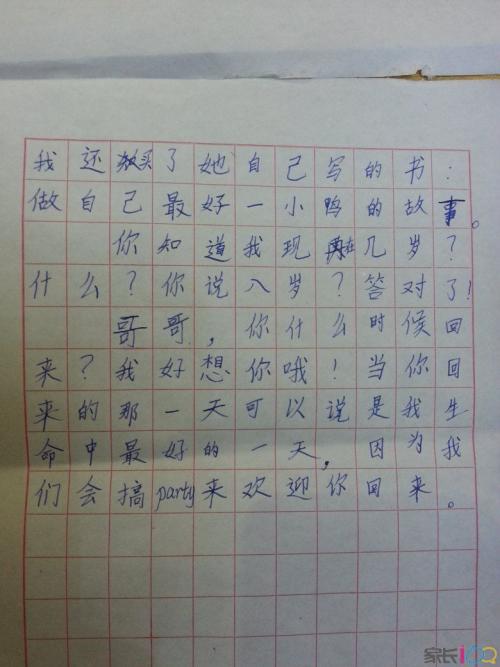 我还买了她自己写的书：
做自己最好一小鸭的故事。
你知道我现在几岁？
什么？你说八岁？答对了！
哥哥，你什么时候回
来？我好想你哦！当你回
来的那一天可以说是我生
命中最好的一天，因为我
们会搞party来欢迎你回来。
家长